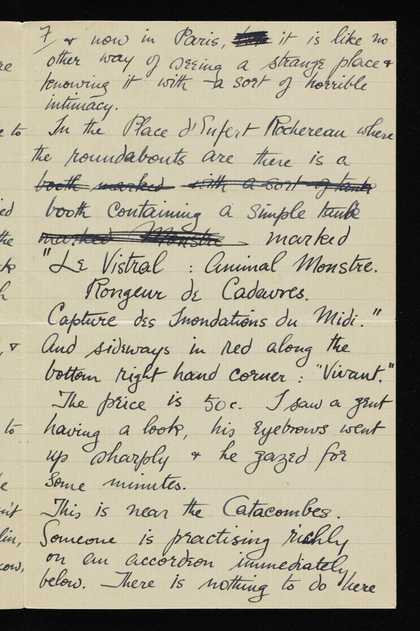 7, & now in Paris, it is like no
other way of seeing a strange place &
knowing it with a sort of horrible
intimacy.
In the Place d'Enfert Rochereau where
the roundabouts are there is a
booth marked with a sort of tank
booth containing a simple tank
marked Monstre marked
"Le Vistral : Animal Monstre.
Rongeur de Cadavres.
Capture des Inondations du Midi."
And sideways in red along the
bottom right hand corner : "Vivant."
The price is 50c. I saw a gent
having a look, his eyebrows went
up sharply & he gazed for
some minutes.
This is near the Catacombes.
Someone is practising richly
on an accordeon immediately
below. There is nothing to do here